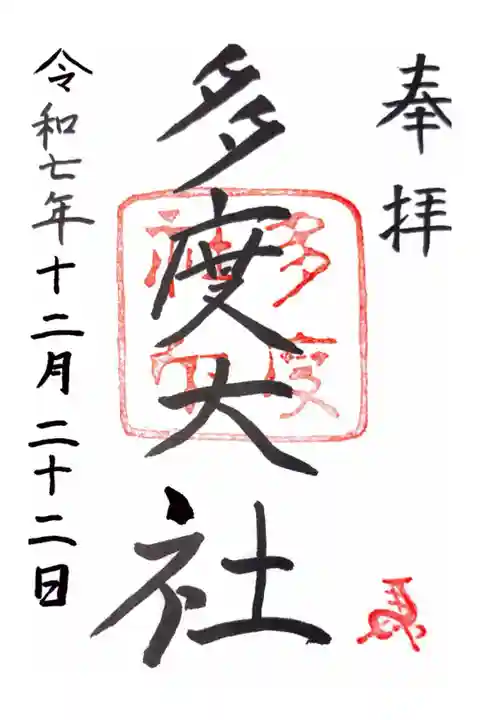 奉拝
多度大社
多度
社印
令和七年十二月二十二日